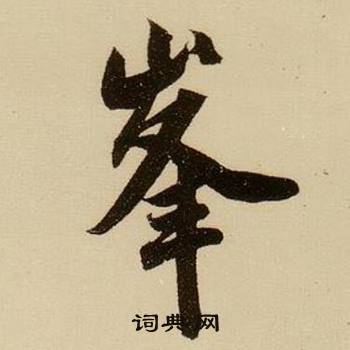 峯
词典网